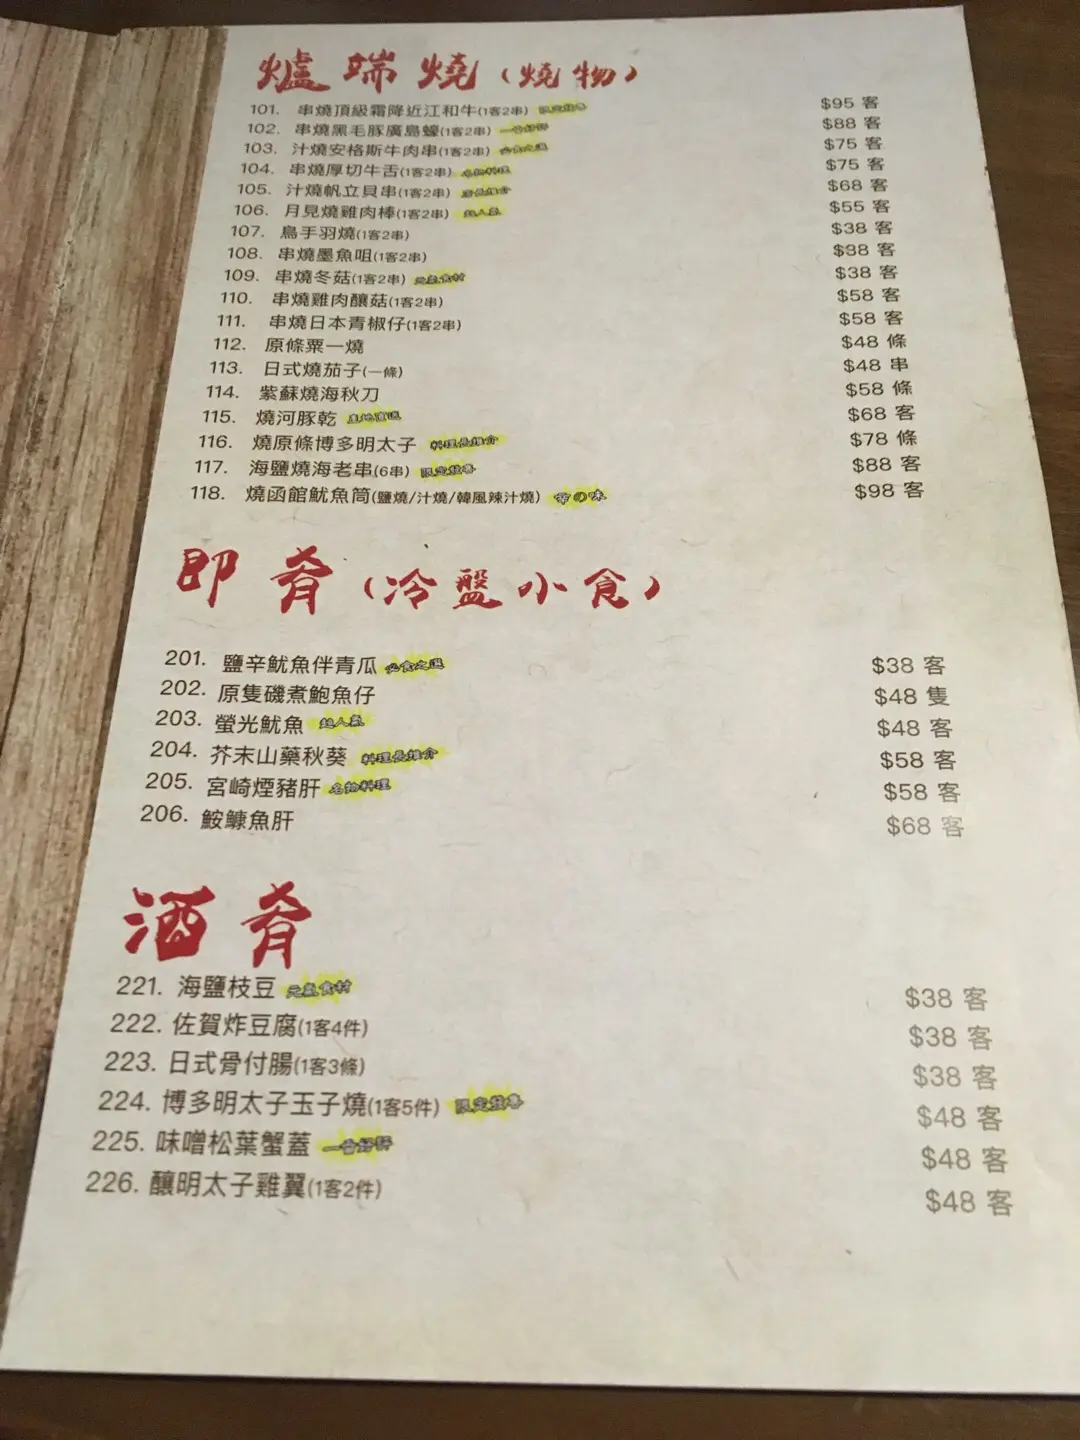 爐端燒(燒物)
101. 串燒頂級霜降近江和牛(1客2串) 限定發售 $95 客
102. 串燒黑毛豚廣島蠔(1客2串) 一番好評 $88 客
103. 汁燒安格斯牛肉串(1客2串) 必食之選 $75 客
104. 串燒厚切牛舌(1客2串) 名物料理 $75 客
105. 汁燒帆立貝串(1客2串) 店長推介 $68 客
106. 月見燒雞肉棒(1客2串) 超人氣 $55 客
107. 鳥手羽燒(1客2串) $38 客
108. 串燒墨魚咀(1客2串) $38 客
109. 串燒冬菇(1客2串) 元氣食材 $38 客
110. 串燒雞肉釀菇(1客2串) $58 客
111. 串燒日本青椒仔(1客2串) $58 客
112. 原條粟一燒 $48 條
113. 日式燒茄子(一條) $48 串
114. 紫蘇燒海秋刀 $58 條
115. 燒河豚乾 產地直送 $68 客
116. 燒原條博多明太子 料理長推介 $78 條
117. 海鹽燒海老串(6串) 限定發售 $88 客
118. 燒函館魷魚筒(鹽燒/汁燒/韓風辣汁燒) の味 $98 客
即肴(冷盤小食)
201. 鹽辛魷魚伴青瓜 必食之選 $38 客
202. 原隻磯煮鮑魚仔 $48 隻
203. 螢光魷魚 超人氣 $48 客
204. 芥末山藥秋葵 料理長推介 $58 客
205. 宮崎煙豬肝 名物料理 $58 客
206. 鮟鱇魚肝 $68 客
酒肴
221. 海鹽枝豆 元氣食材 $38 客
222. 佐賀炸豆腐(1客4件) $38 客
223. 日式骨付腸(1客3條) $38 客
224. 博多明太子玉子燒(1客5件) 限定發售 $48 客
225. 味噌松葉蟹蓋 一番好評 $48 客
226. 釀明太子雞翼(1客2件) $48 客